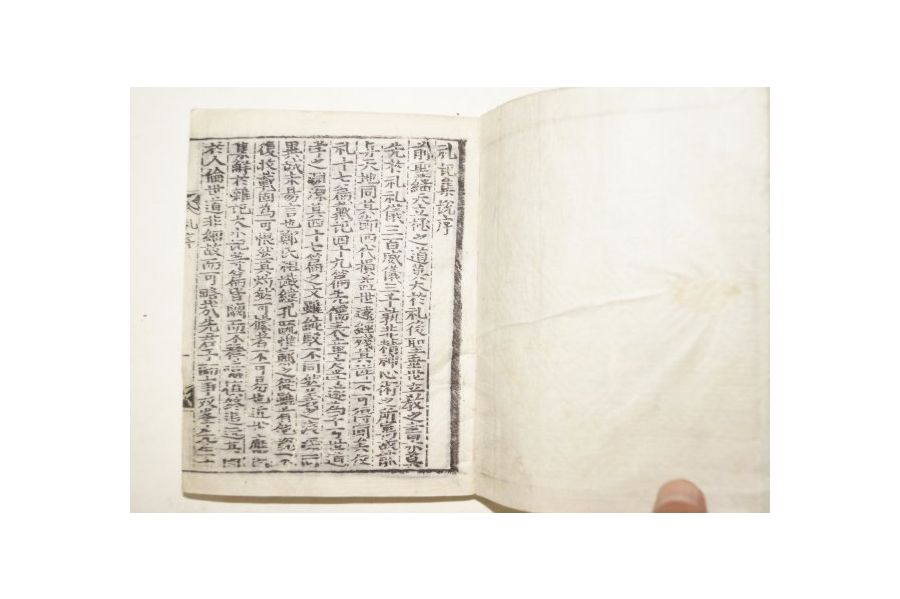 礼記集說序
前聖繼天立極之道莫大於礼後聖垂世立教之書亦莫
先於礼礼儀三百威儀三千孰非精神心術之所寓故能
与天地同其節四代損益世遠經残其詳不可得聞矣
礼十七篇戴記四十九篇先儒表章遂為千万世道
学之淵源其四十七篇之文雖純駁不同然義之浅深同
異誠未易言也鄭氏祖讖緯孔疏惟鄭之從雖有他說不
復收載固為可恨然其灼然可據者不可易也近世應氏
集解於雜記大小記等篇皆闕而不釋噫慎終追遠其関
於人倫世道非細故而可略哉先君子師事双峯先生十
礼序